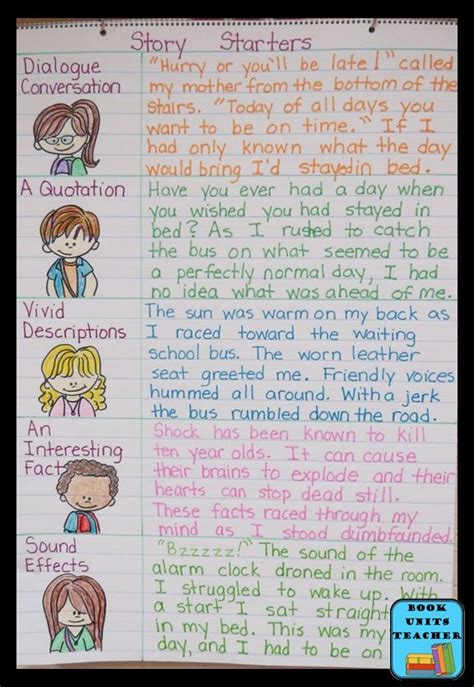 Story Starters
Dialogue
Conversation
"Hurry or you'll be late!" called
my mother from the bottom of the
stairs. "Today of all days you
want to be on time." If I
had only known what the day
would bring I'd stayed in bed.
A Quotation
Have you ever had a day when
you wished you had stayed in
bed? As I rushed to catch
the bus on what seemed to be
a perfectly normal day, I had
no idea what was ahead of me.
Vivid
Descriptions
The sun was warm on my back as
I raced toward the waiting
school bus. The worn leather
seat greeted me. Friendly voices
hummed all around. With a jerk
the bus rumbled down the road.
An
Interesting
Fact
Shock has been known to kill
ten year olds. It can cause
their brains to explode and their
hearts can stop dead still.
These facts raced through my
mind as I stood dumbfounded.
Sound
Effects
"Bzzzzz!" The sound of the
alarm clock droned in the room.
I struggled to wake up. With
a start I sat straight
in my bed. This was my
day, and I had to be on
BOOK
UNITS
TEACHER